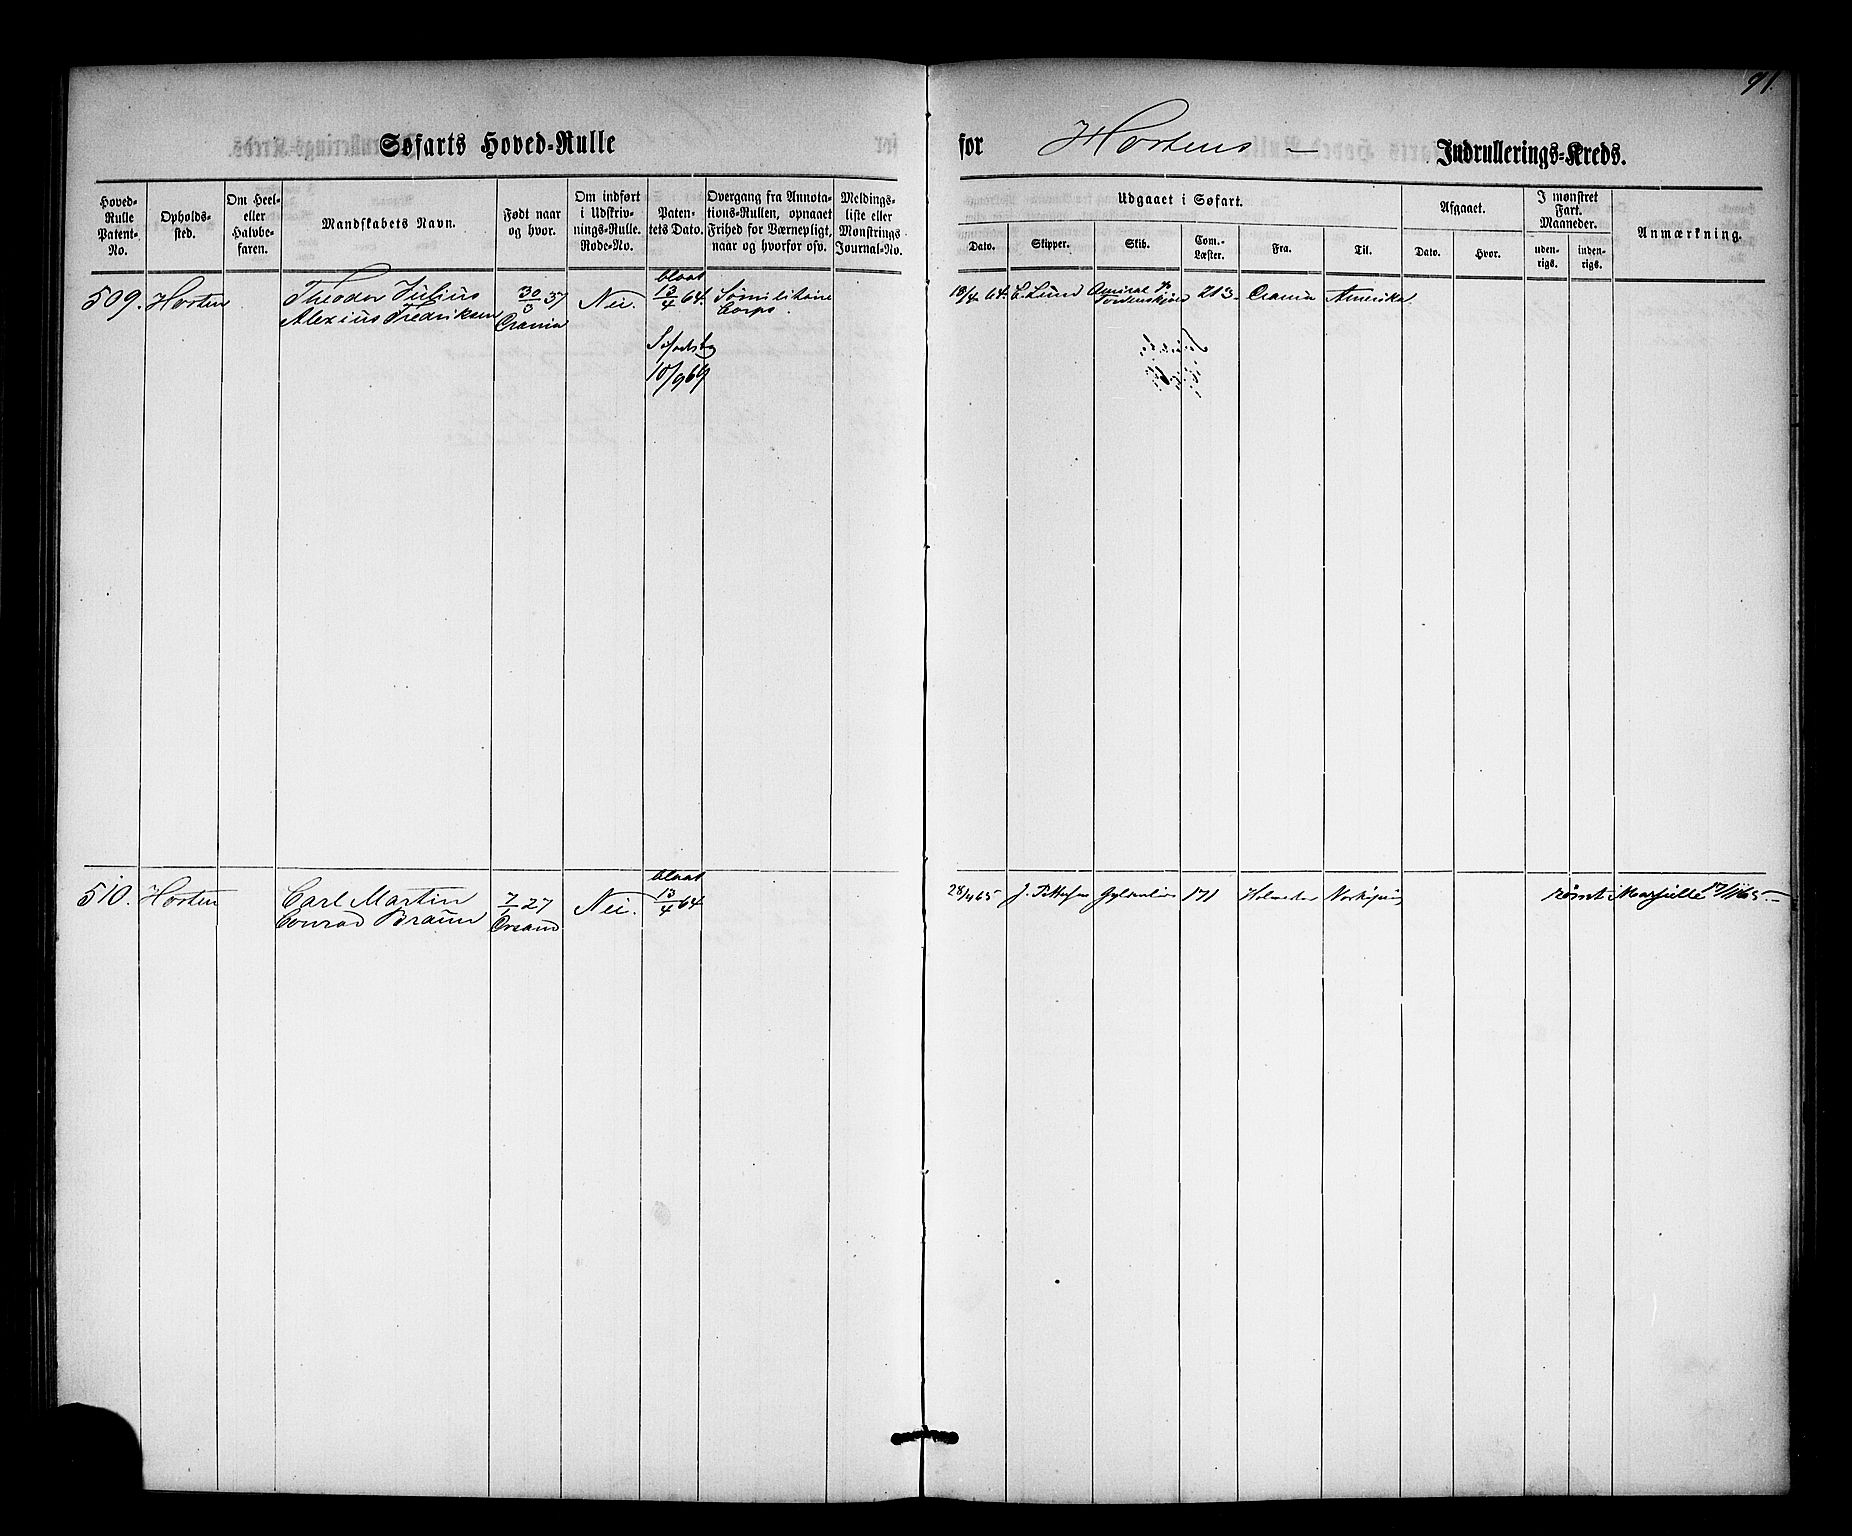 91.
Søfarts Hoved-Rulle
for Hortens Indrullerings-Kreds.
Hoved-Rulle Patent-No.
Opholds-sted.
Om Heel- eller Halvbe-faren.
Mandskabets Navn.
Født naar og hvor.
Om indført i Udskriv-nings-Rulle. Rode-No.
Paten-tets Dato.
Overgang fra Annota-tions-Rullen, opnaaet Frihed for Værnepligt, naar og hvorfor osv.
Meldings-liste eller Mønstrings Journal-No.
Udgaaet i Søfart.
Dato.
Skipper.
Skib.
Com.-Læster.
Fra.
Til.
Afgaaet.
Dato.
Hvor.
I mønstret Fart. Maaneder.
uden-rigs.
inden-rigs.
Anmærkning.
509. Horten Theodor Julius 30/3 37 Nei. blaat 13/4 64. Sømilitaire
Alexius Fredriksen Crania Corps.
18/4 64. C. Lund Amiral Tordenskjold 213 - Crania Amerika.
10/9 69
510. Horten Carl Martin 7/1 27 Nei. blaat 13/4 64
Conrad Braun Crsand
28/4 65 171
rømt Marseille